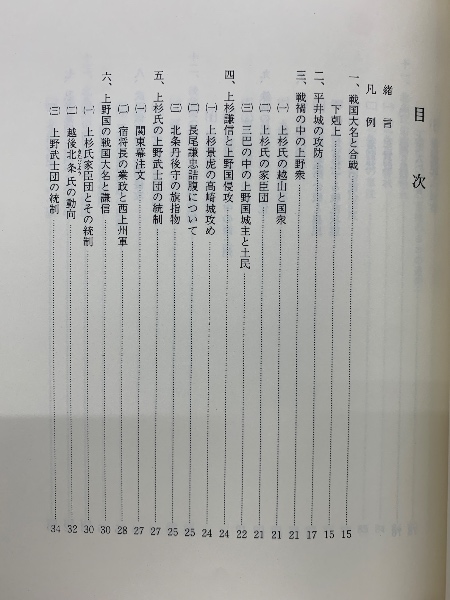 目次
緒言
凡例
一、戦国大名と合戦……15
下剋上……15
二、平井城の攻防……17
三、戦禍の中の上野衆……21
㈠ 上杉氏の越山と国衆……21
㈡ 上杉氏の家臣団……21
㈢ 三巴の中の上野国城主と土民……22
四、上杉謙信と上野国侵攻……24
㈠ 上杉景虎の高崎城攻め……24
㈡ 長尾忠景詰腹について……25
㈢ 北条丹後守の旗指物……25
五、上杉氏の上野武士団の統制……27
㈠ 関東幕注文……27
㈡ 宿将長の業政と西上州軍……28
六、上野国の戦国大名と謙信……30
㈠ 上杉氏家臣団とその統制……30
㈡ 越後北条氏の動向……32
㈢ 上野武士団の統制……34